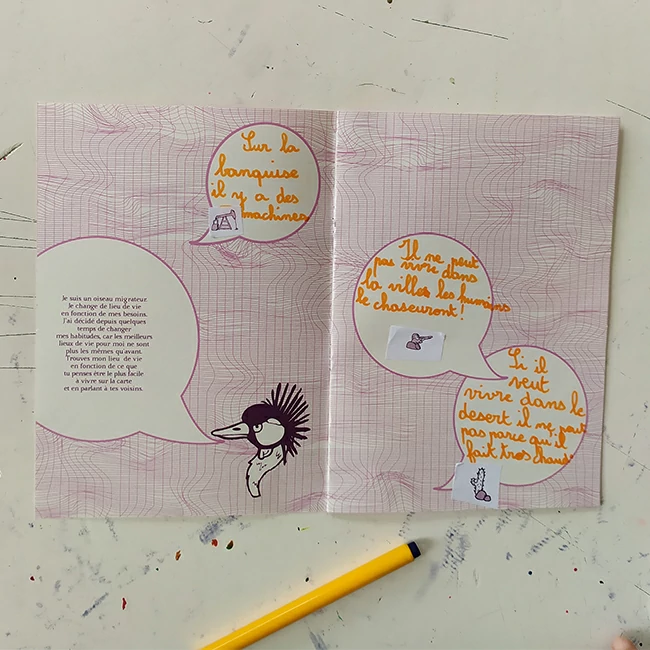 Sur la
banquise
il y a des
machines
Je suis un oiseau migrateur
Je change de lieu de vie
en fonction de mes besoins.
J'ai décidé depuis quelques
temps de changer
mes habitudes, car les meilleurs
lieux de vie pour moi ne sont
plus les mêmes qu'avant.
Trouves mon lieu de vie
en fonction de ce que
tu penses être le plus facile
à vivre sur la carte
et en parlant à tes voisins.
Il ne peut
pas vivre dans
la villes les humains
le chaseuront!
Si il
veut
vivre dans le
desert il ne peut
pas parce qu'il
fait tros chaud.